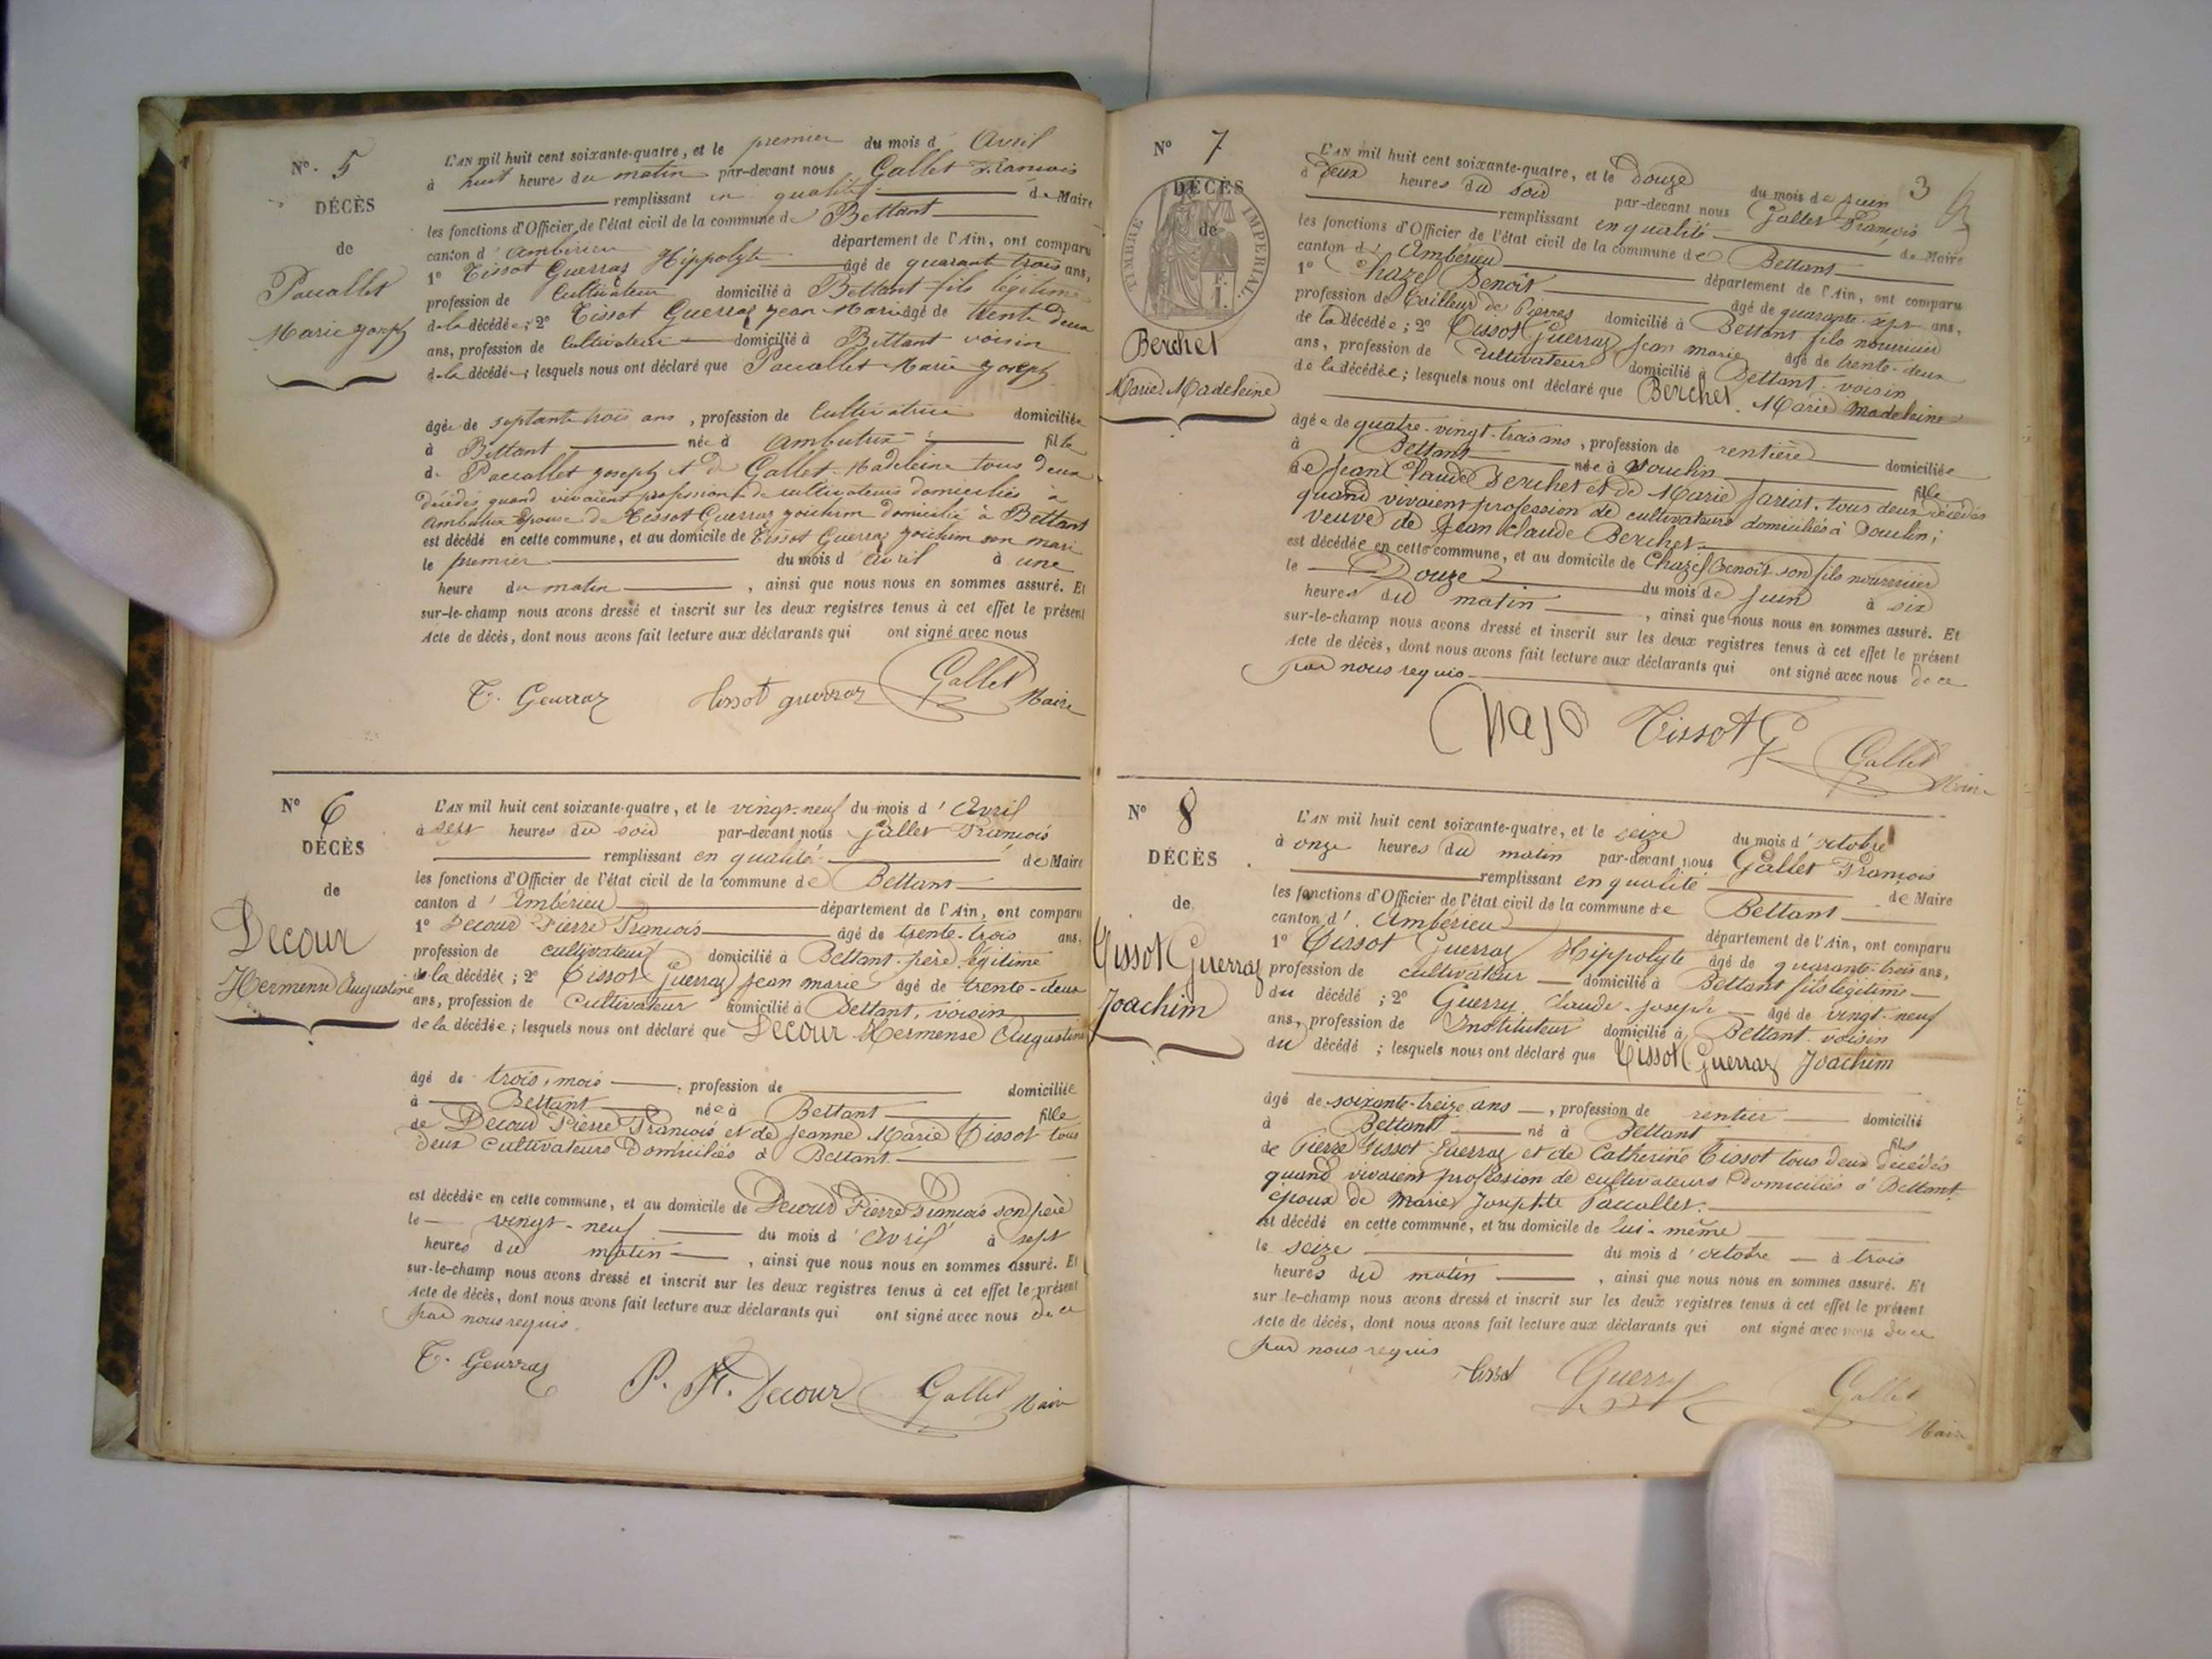 N° 5
DÉCÈS
de
Paccallet
Marie Joseph
L'AN mil huit cent soixante-quatre, et le premier du mois d' Avril
à huit heures du matin par-devant nous Gallet François
remplissant en qualité de Maire
les fonctions d'Officier de l'état civil de la commune de Bettant
canton d' Ambérieu département de l'Ain, ont comparu
1° Tissot Guerraz Hippolyte âgé de quarante trois ans,
profession de Cultivateur domicilié à Bettant fils légitime
de la décédée; 2° Tissot Guerraz Jean Marie âgé de trente deux
ans, profession de Cultivateur domicilié à Bettant voisin
de la décédée; lesquels nous ont déclaré que Paccallet Marie Joseph
âgée de septante trois ans, profession de Cultivatrice domiciliée
à Bettant née à Ambutrix fille
de Paccallet Joseph et de Gallet Madeleine tous deux
décédés quand vivaient profession de cultivateurs domiciliés à
Ambutrix épouse de Tissot Guerraz Joichim domicilié à Bettant
est décédé en cette commune, et au domicile de Tissot Guerraz Joichim son mari
le premier du mois d' Avril à une
heure du matin, ainsi que nous nous en sommes assuré. Et
sur-le-champ nous avons dressé et inscrit sur les deux registres tenus à cet effet le présent
Acte de décès, dont nous avons fait lecture aux déclarants qui ont signé avec nous
T. Geurraz Tissot guerraz Gallet Maire
N° 6
DÉCÈS
de
Decour
Hermense Augustine
L'AN mil huit cent soixante-quatre, et le vingt-neuf du mois d' Avril
à sept heures du soir par-devant nous Gallet François
remplissant en qualité de Maire
les fonctions d'Officier de l'état civil de la commune de Bettant
canton d' Ambérieu département de l'Ain, ont comparu
1° Decour Pierre François âgé de trente-trois ans,
profession de cultivateur domicilié à Bettant père légitime
de la décédée; 2° Tissot Guerraz Jean marie âgé de trente-deux
ans, profession de Cultivateur domicilié à Bettant, voisin
de la décédée; lesquels nous ont déclaré que Decour Hermense Augustine
âgé de trois mois, profession de domiciliée
à Bettant née à Bettant fille
de Decour Pierre François et de Jeanne Marie Tissot tous
deux Cultivateurs Domiciliés à Bettant
est décédée en cette commune, et au domicile de Decour Pierre François son père
le vingt-neuf du mois d' Avril à sept
heures du matin, ainsi que nous nous en sommes assuré. Et
sur-le-champ nous avons dressé et inscrit sur les deux registres tenus à cet effet le présent
Acte de décès, dont nous avons fait lecture aux déclarants qui ont signé avec nous de ce
par nous requis.
T. Geurraz P. F. Decour Gallet Maire
3
N° 7
DÉCÈS
de
TIMBRE IMPÉRIAL
1 F.
Berchet
Marie Madeleine
L'AN mil huit cent soixante-quatre, et le Douze du mois de juin
à Deux heures du soir par-devant nous Gallet François
remplissant en qualité de Maire
les fonctions d'Officier de l'état civil de la commune de Bettant
canton d' Ambérieu département de l'Ain, ont comparu
1° Chazel Benoît âgé de quarante-sept ans,
profession de Tailleur de Pierres domicilié à Bettant fils nourricier
de la décédée; 2° Tissot Guerraz Jean marie âgé de trente-deux
ans, profession de Cultivateur domicilié à Bettant voisin
de la décédée; lesquels nous ont déclaré que Berchet Marie Madeleine
âgée de quatre-vingt-trois ans, profession de rentière domiciliée
à Bettant née à Soulin fille
de Jean Claude Berchet et de Marie Jariat, tous deux décédés
quand vivaient profession de cultivateurs domiciliés à Soulin;
veuve de Jean Claude Berchet
est décédée en cette commune, et au domicile de Chazel Benoit son fils nourricier
le Douze du mois de Juin à six
heures du matin, ainsi que nous nous en sommes assuré. Et
sur-le-champ nous avons dressé et inscrit sur les deux registres tenus à cet effet le présent
Acte de décès, dont nous avons fait lecture aux déclarants qui ont signé avec nous de ce
par nous requis
Tissot G Gallet Maire
N° 8
DÉCÈS
de
Tissot Guerraz
Joachim
L'AN mil huit cent soixante-quatre, et le seize du mois d' octobre
à onze heures du matin par-devant nous Gallet François
remplissant en qualité de Maire
les fonctions d'Officier de l'état civil de la commune de Bettant
canton d' Ambérieu département de l'Ain, ont comparu
1° Tissot Guerraz Hippolyte âgé de quarante-trois ans,
profession de cultivateur domicilié à Bettant fils légitime
du décédé; 2° Guerry Claude-joseph âgé de vingt-neuf
ans, profession de Instituteur domicilié à Bettant voisin
du décédé; lesquels nous ont déclaré que Tissot Guerraz Joachim
âgé de soixante-treize ans, profession de rentier domicilié
à Bettant né à Bettant fils
de Pierre Tissot Guerraz et de Catherine Tissot tous deux décédés
quand vivaient profession de cultivateurs Domiciliés à Bettant,
époux de Marie Josephte Paccallet.
est décédé en cette commune, et au domicile de lui-même
le seize du mois d' octobre à trois
heures du matin, ainsi que nous nous en sommes assuré. Et
sur-le-champ nous avons dressé et inscrit sur les deux registres tenus à cet effet le présent
Acte de décès, dont nous avons fait lecture aux déclarants qui ont signé avec nous de ce
par nous requis
Tissot Guerry Gallet Maire